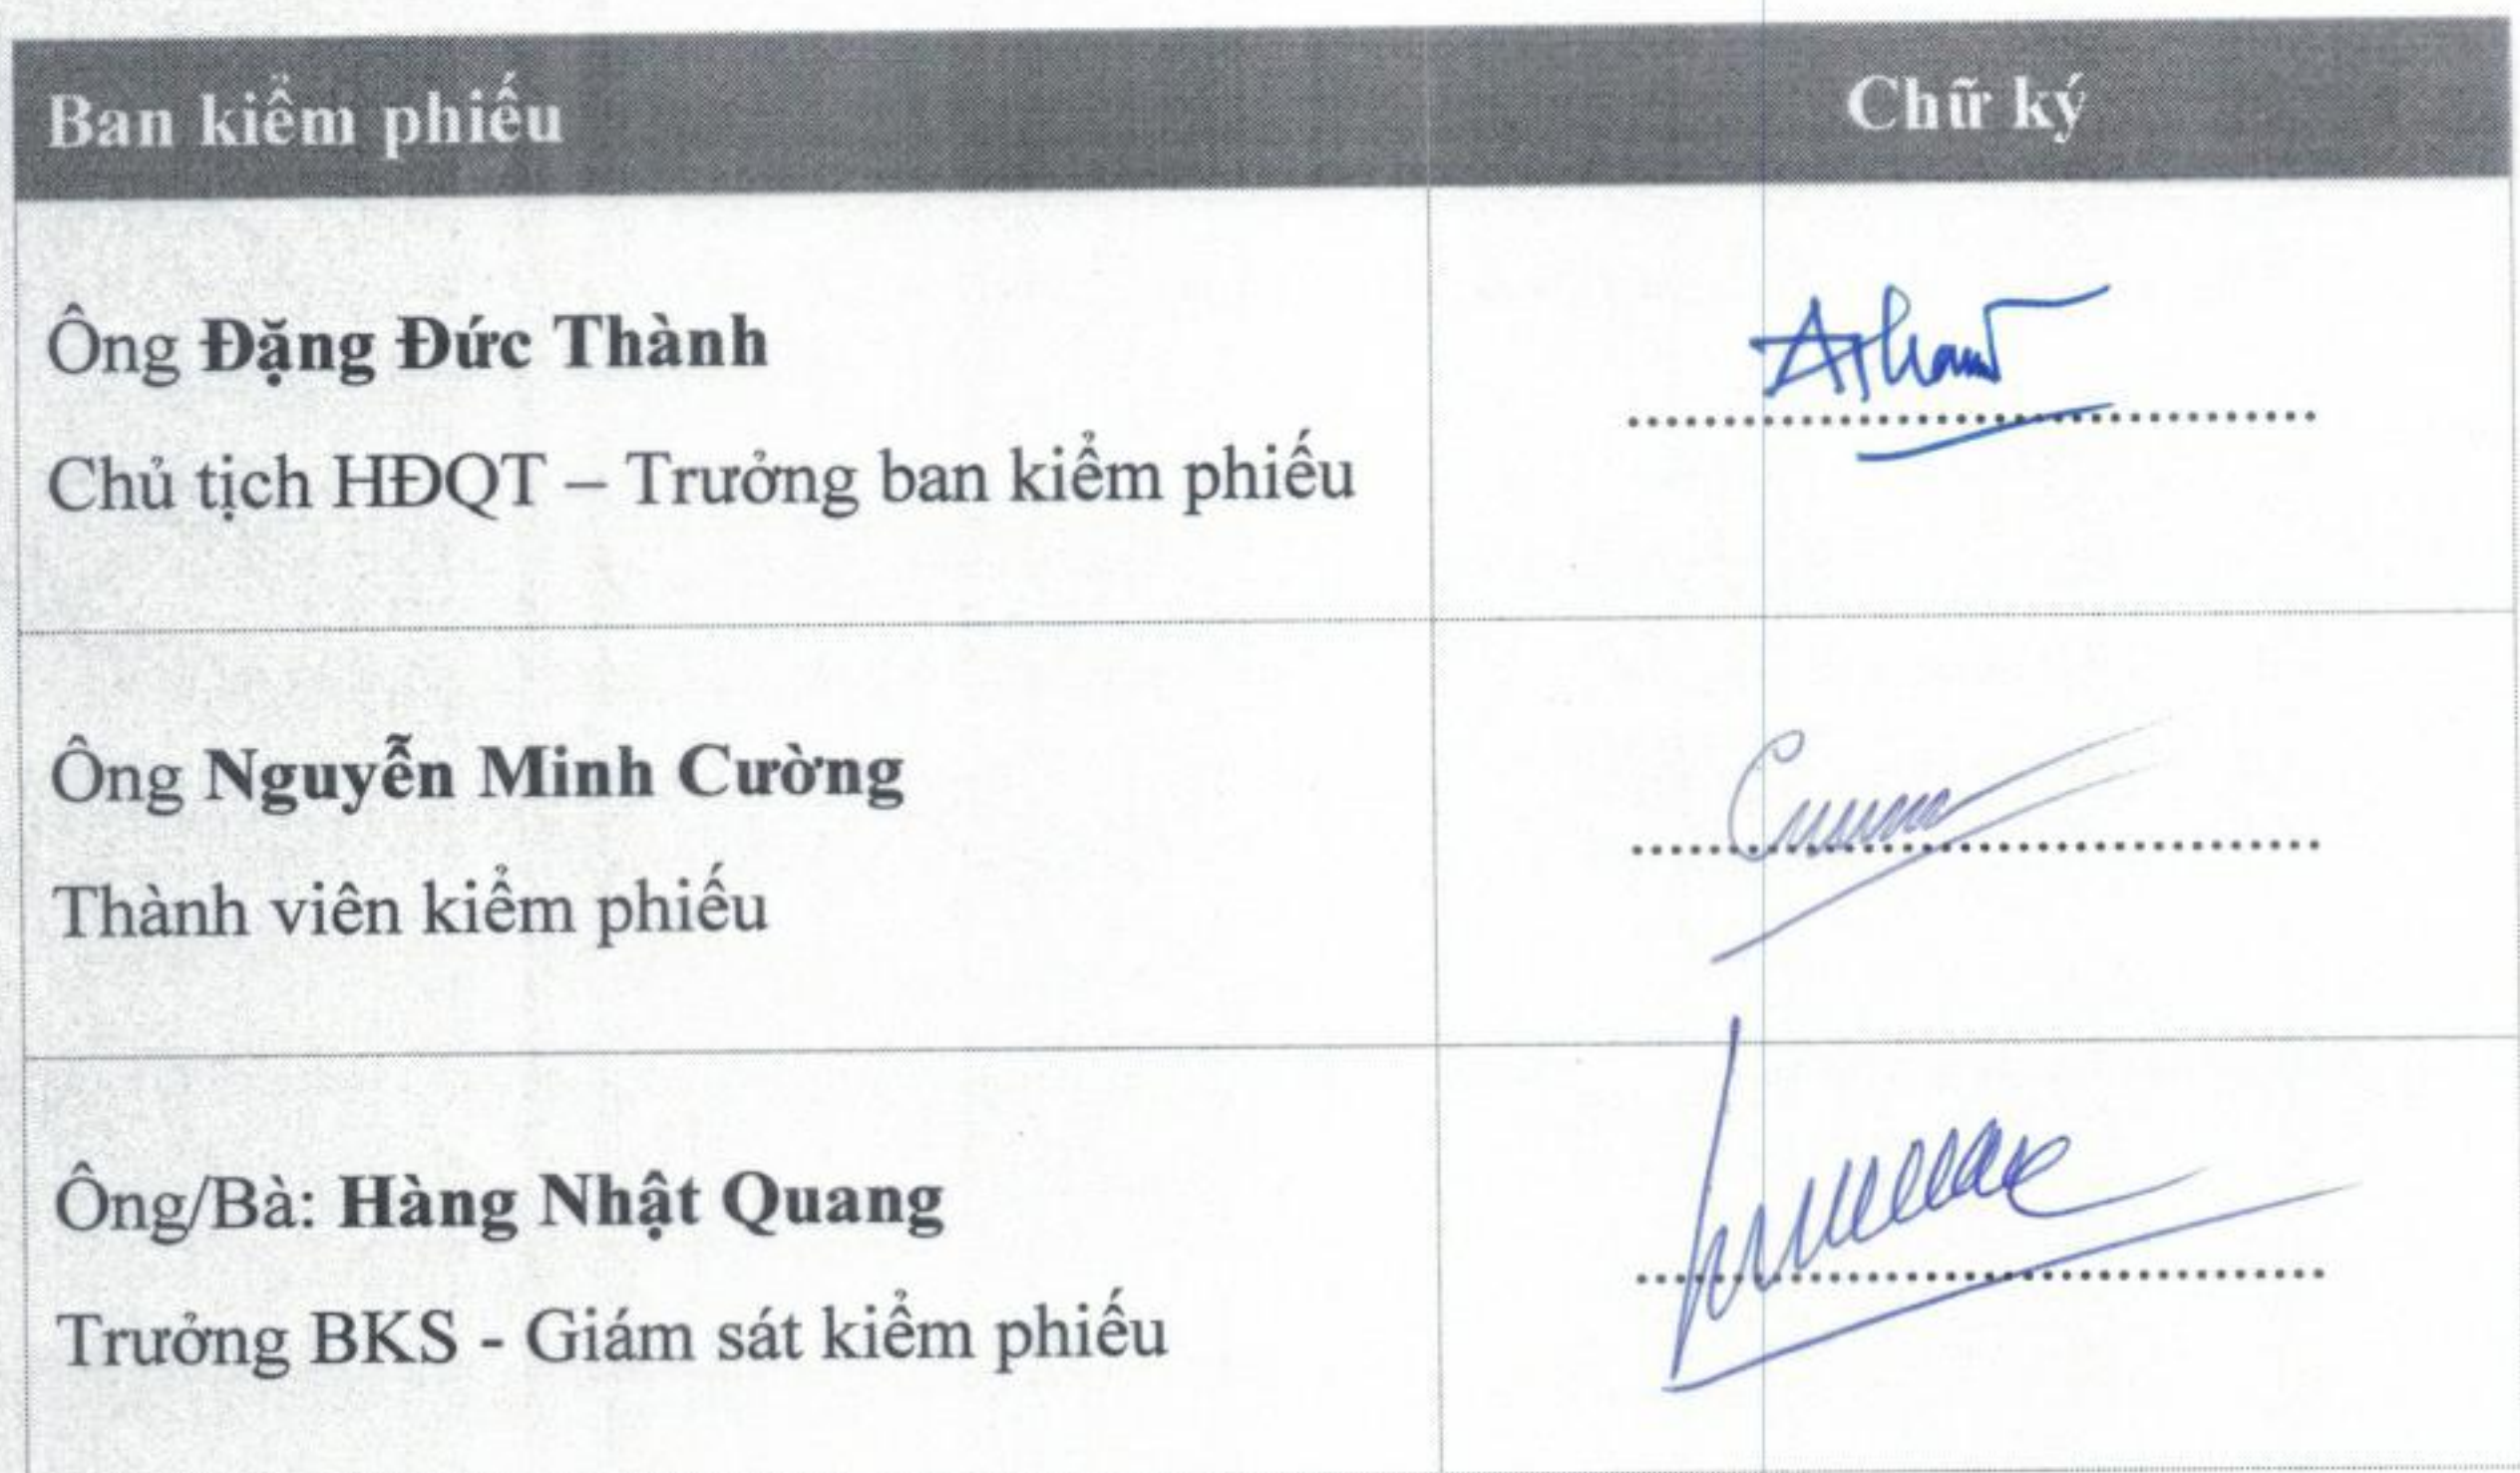 Ban kiểm phiếu Chữ ký
Ông Đặng Đức Thành
Chủ tịch HĐQT – Trưởng ban kiểm phiếu
Ông Nguyễn Minh Cường
Thành viên kiểm phiếu
Ông/Bà: Hàng Nhật Quang
Trưởng BKS - Giám sát kiểm phiếu